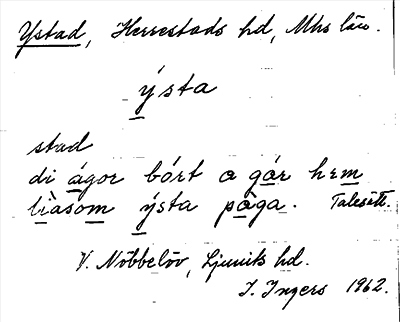 Ystad, Herrestads hd, Mhs län.
ýsta
stad
di ágor bórt o gár hem
lìasom ýsta pàga. Talesätt.
V. Nöbbelöv, Ljunits hd.
I. Ingers 1962.